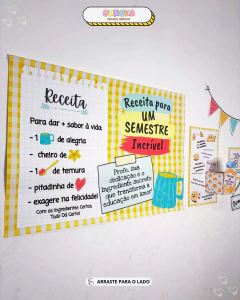 Receita
Para dar + sabor à vida
- 1 de alegria
- cheiro de
- 1 de ternura
- pitadinha de
- exagere na felicidade!
Com os Ingredientes Certos,
Tudo Dá Certo!
Receita para
UM
SEMESTRE
Incrível
Profe, sua
dedicação é o
ingrediente secreto
que transforma a
educação em amor!
ARRASTE PARA O LADO